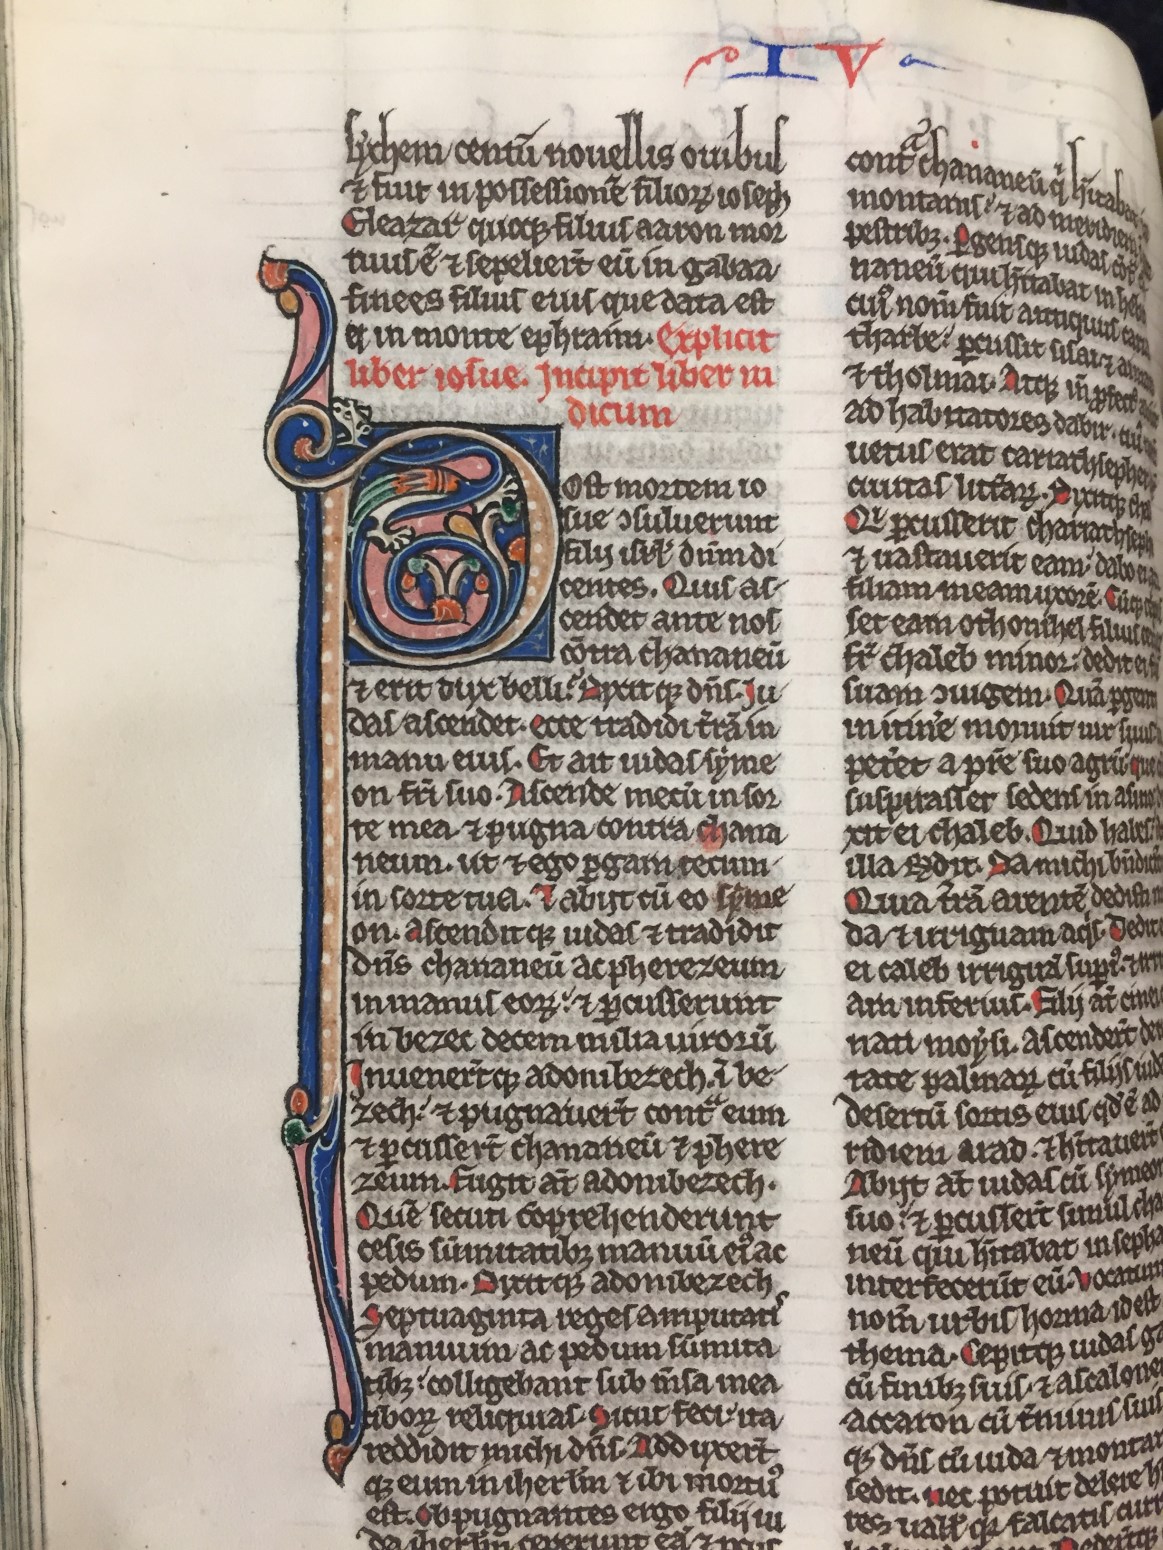 IV
sychem centū novellis ovibus
⁊ fuit in possessionē filioꝝ ioseph
Eleazar quoqꝫ filius aaron mor
tuus ē ⁊ sepelier̄t eū in gabaa
finees filius eius que data est
ei in monte ephraim. Explicit
liber iosue. Incipit liber iu
dicum
Post mortem io
sue ɔsuluerunt
filij isrl̓ dūm di
centes. Quis as
cendet ante nos
cōtra chananeū
⁊ erit dux belli. Dixitqꝫ dn̄s. Iu
das ascendet. ecce tradidi t̄rā in
manu eius. Et ait iudas syme
on fr̄i suo. Ascende mecū in sor
te mea ⁊ pugna contra chana
neum. ut ⁊ ego ꝑgam tecum
in sorte tua. ⁊ abijt cū eo syme
on. Ascenditqꝫ iudas ⁊ tradidit
dn̄s chananeū ac pherezeum
in manus eoꝝ. ⁊ ꝑcusserunt
in bezec decem milia uirorū
Inuener̄tqꝫ adonibezech ī be
zech. ⁊ pugnauer̄t contᵃ eum
⁊ ꝑcusser̄t chananeū ⁊ phere
zeum. Fugit aūt adonibezech.
Quē secuti cōprehenderunt
cesis sūmitatibꝫ manuū eiꝰ ac
pedum. Dixitqꝫ adonibezech
Septuaginta reges amputatis
manuum ac pedum sūmita
tibꝫ. colligebant sub mn̄sa mea
ciboꝝ reliquias. Sicut feci. ita
reddidit michi dn̄s. Adduxer̄t
qꝫ eum in iherlm̄ ⁊ ibi mortuꝰ
est. Obpugnantes ergo filij iu
da iherlm̄ ceperunt eā ⁊ ꝑcus
contᵃ chananeū qi hītabat
montanis. ⁊ ad meridiem
pestribꝫ. Pgensqꝫ iudas cōt
naneū qui hītabat in heb
cuiꝰ nom̄ fuit antiquitus cari
tharbe. ꝑcussit sisai ⁊
⁊ tholmai. Atqꝫ in̄
ad habitatores dabir. cuiꝰ
uetus erat cariathsepher
ciuitas litt̄aꝝ. Dixitqꝫ
Qi ꝑcusserit chariathseph
⁊ uastauerit eam. dabo ei
filiam meam uxorē. Cūqꝫ
set eam othonihel filius
fr̄ chaleb minor. dedit ei
suam ɔiugem. Quā ꝑgentem
in itin̄e monuit uir
pet̄et a pr̄e suo agrū. que
suspirasset sedens in asino
xit ei chaleb. Quid habes
illa rn̄dit. Da michi bn̄dictō
Quia t̄rā arentē dedisti
da ⁊ irriguam aqīs. Dedit
ei caleb irriguū supiꝰ. ⁊ irri
am inferius. Filij aūt cinei
nati moysi. ascender̄t de
tate palmaꝝ cū filijs iuda
desertū sortis eius qd̄ ē ad
ridiem arad. ⁊ hītauer̄t
Abijt aūt iudas cū symeon
suo. ⁊ ꝑcusser̄t simul cha
neū qui hītabat in sepha
interfecerūt eū. Vocatum
nom̄ urbis horma. id est
thema. Cepitqꝫ iudas ga
cū finibꝫ suis. ⁊ ascalonem
accaron cū t̄minis suis
qꝫ dn̄s cū iuda ⁊ montan
sedit. nec potuit delere
tes uall̓. qꝫ falcatis curr